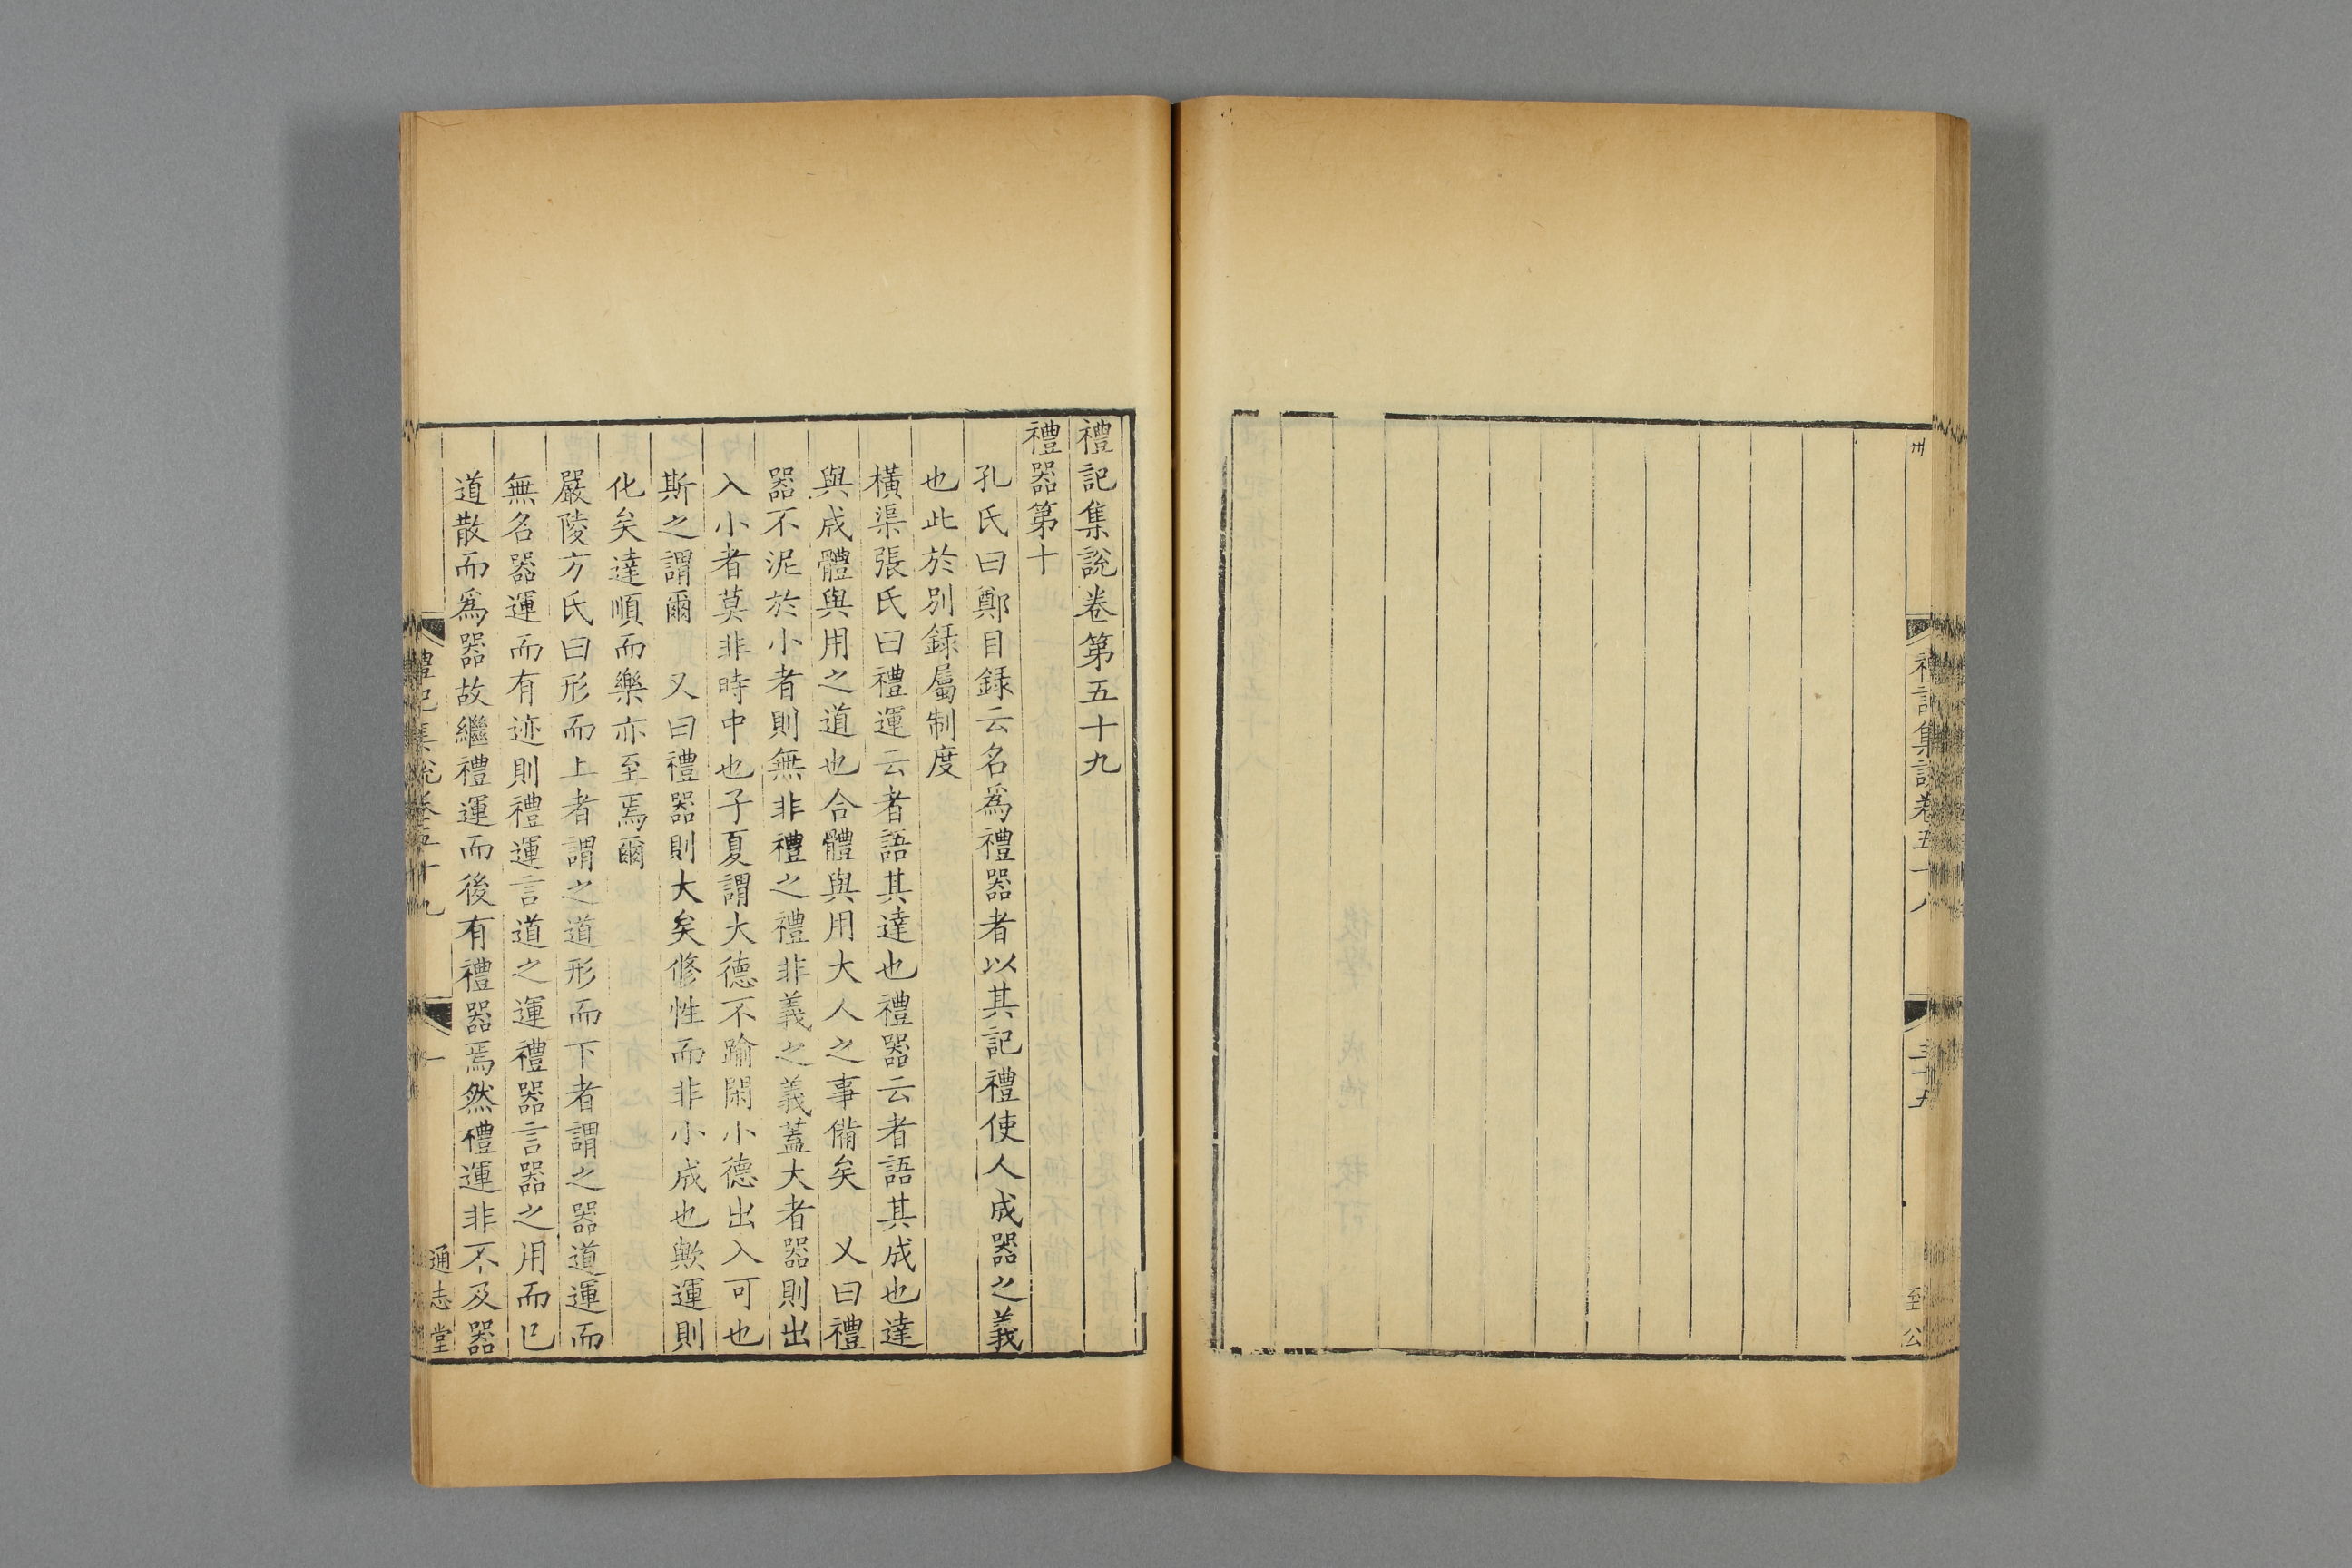 禮記集説卷五十八
三十五
至公
禮記集說卷第五十九
禮器第十
孔氏曰鄭目録云名爲禮器者以其記禮使人成器之義
也此於別録屬制度
橫渠張氏曰禮運云者語其達也禮器云者語其成也達
與成體與用之道也合體與用大人之事備矣 又曰禮
器不泥於小者則無非禮之禮非義之義蓋大者器則出
入小者莫非時中也子夏謂大德不踰閑小德出入可也
斯之謂爾 又曰禮器則大矣修性而非小成也歟運則
化矣達順而樂亦至焉爾
嚴陵方氏曰形而上者謂之道形而下者謂之器道運而
無名器運而有迹則禮運言道之運禮器言器之用而已
道散而爲器故繼禮運而後有禮器焉然禮運非不及器
禮記集說卷五十九
一
通志堂